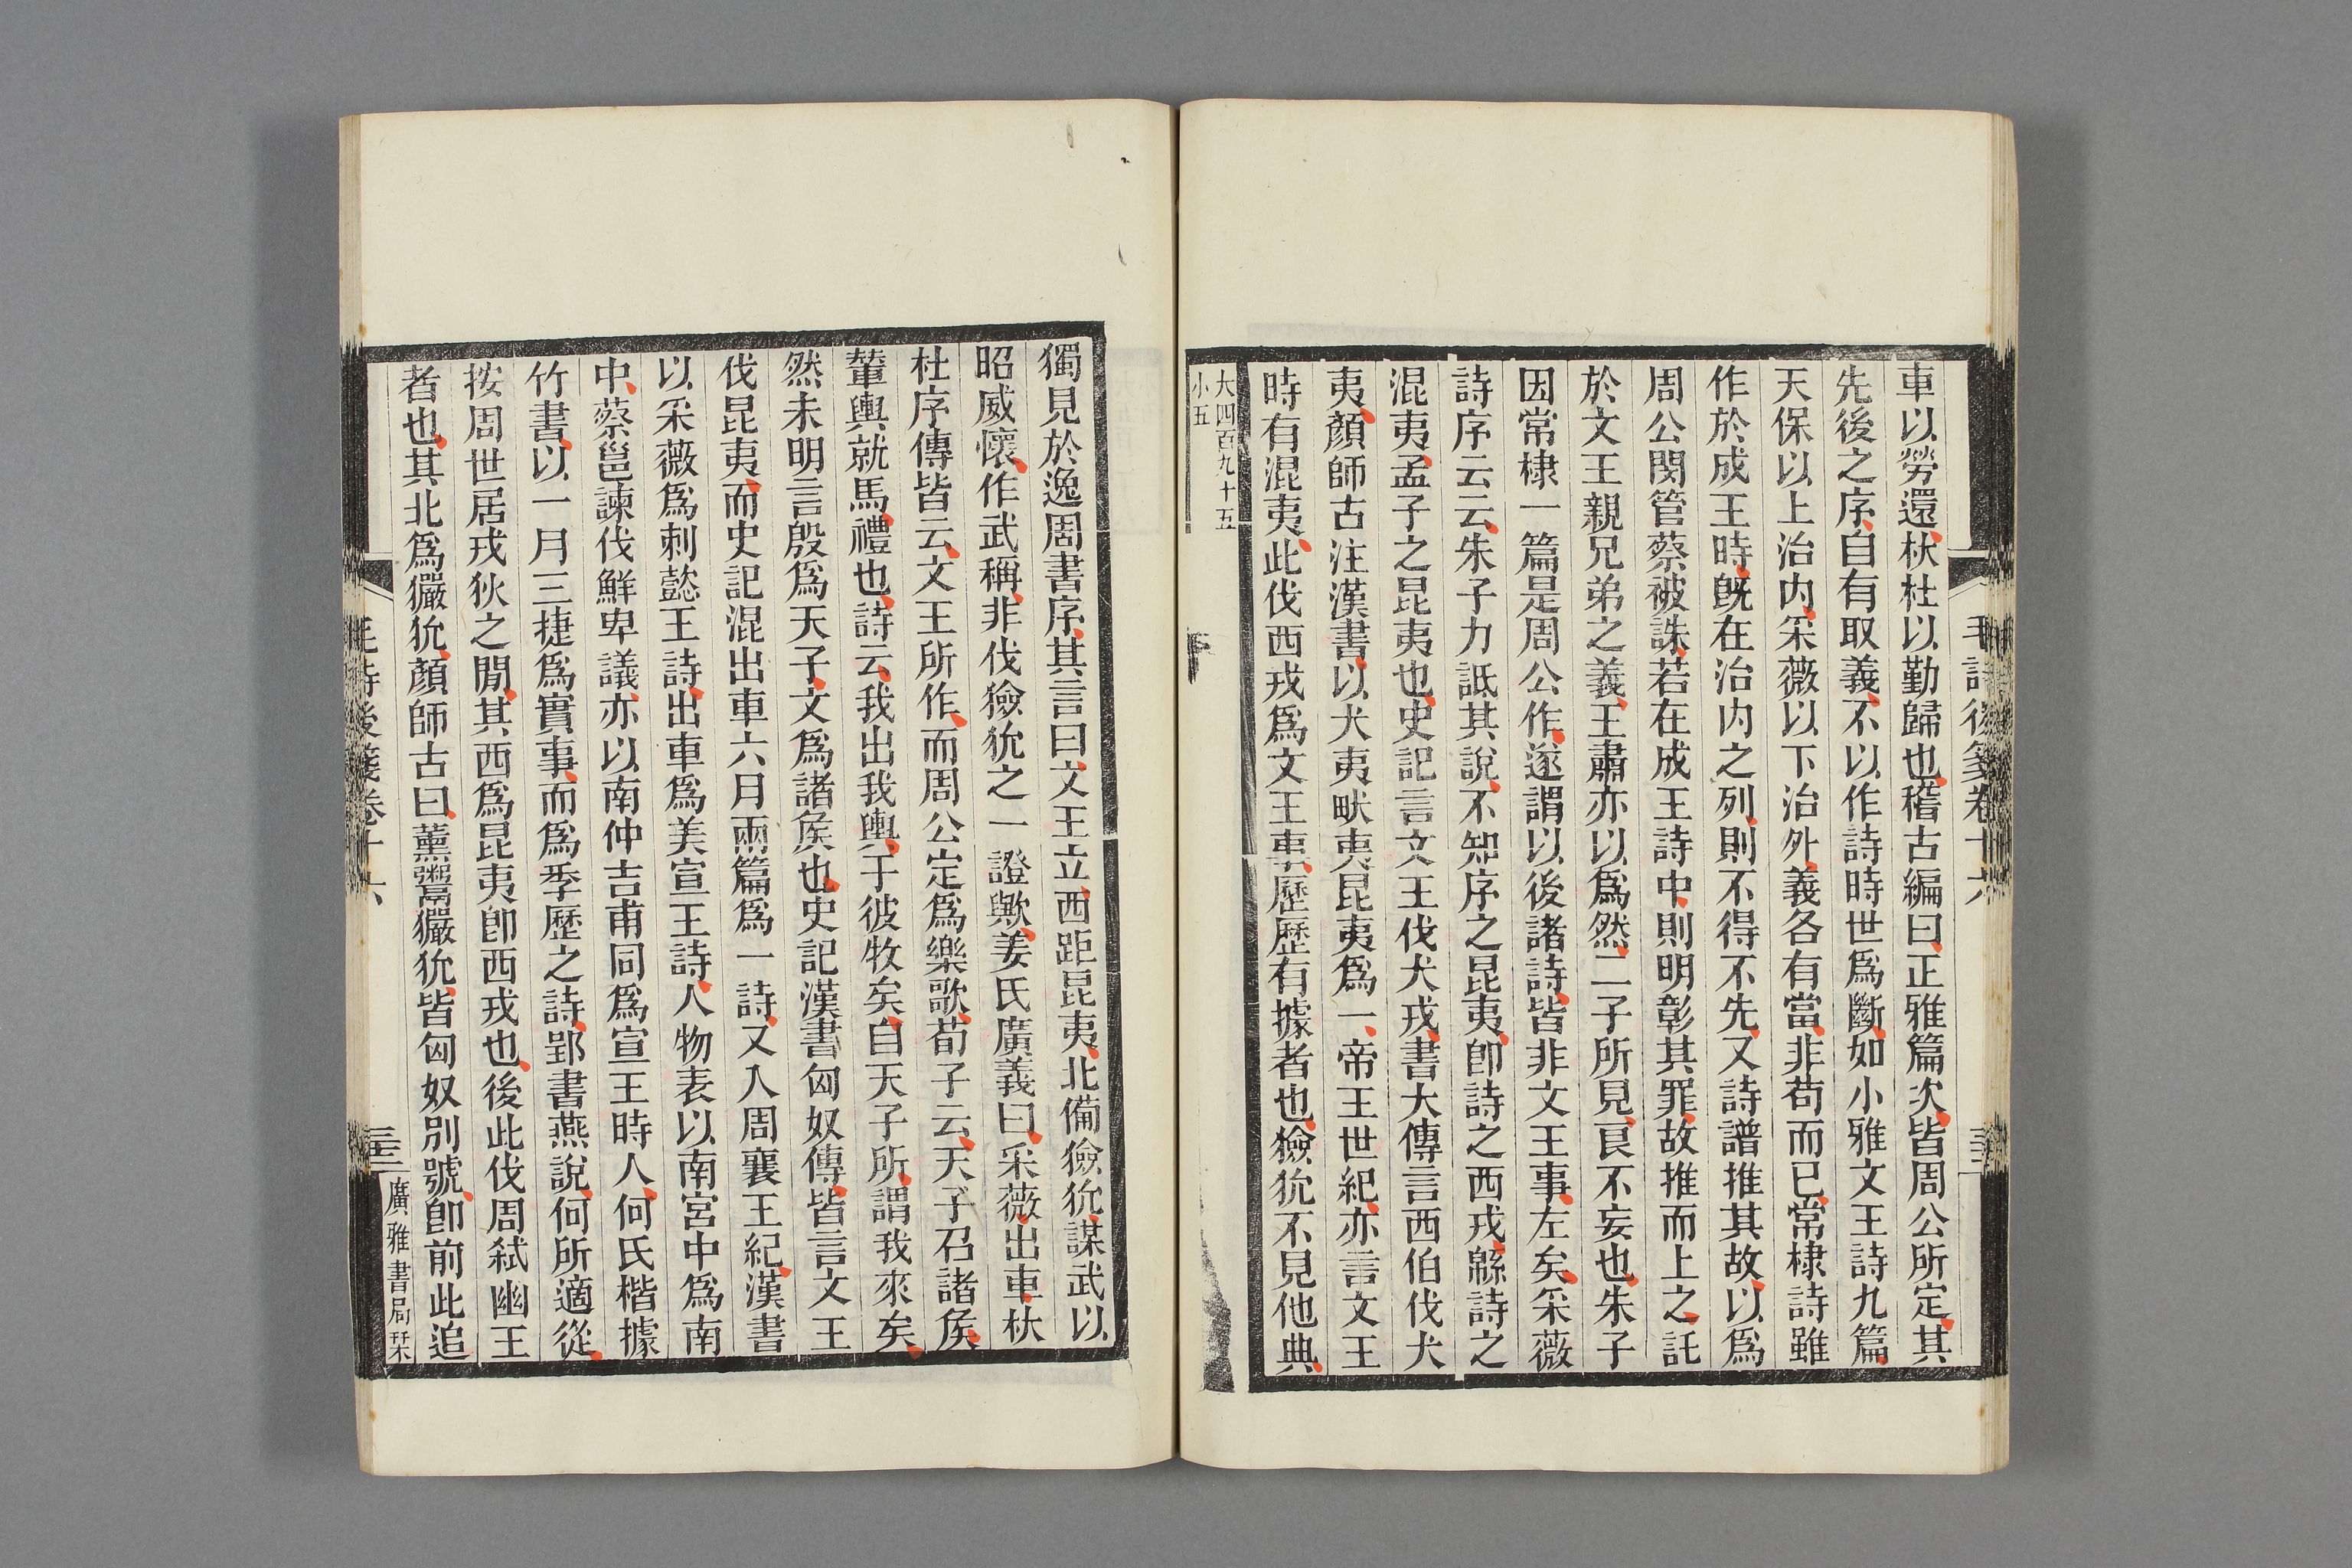 毛詩後箋卷十六
車以勞還杕杜以勤歸也稽古編曰正雅篇次皆周公所定其
先後之序自有取義不以作詩時世爲斷如小雅文王詩九篇
天保以上治内采薇以下治外義各有當非苟而已常棣詩雖
作於成王時既在治内之列則不得不先又詩譜推其故以爲
周公閔管蔡被誅若在成王詩中則明彰其罪故推而上之託
於文王親兄弟之義王肅亦以爲然二子所見良不妄也朱子
因常棣一篇是周公作遂謂以後諸詩皆非文王事左矣采薇
詩序云云朱子力詆其說不知序之昆夷卽詩之西戎緜詩之
混夷孟子之昆夷也史記言文王伐犬戎書大傳言西伯伐犬
夷顏師古注漢書以犬夷畎夷昆夷爲一帝王世紀亦言文王
時有混夷此伐西戎爲文王事歷歷有據者也獫狁不見他典
大四百九十五
小五
獨見於逸周書序其言曰文王立西距昆夷北備獫狁謀武以
昭威懷作武稱非伐獫狁之一證歟姜氏廣義曰采薇出車杕
杜序傳皆云文王所作而周公定爲樂歌荀子云天子召諸矦
輦輿就馬禮也詩云我出我輿于彼牧矣自天子所謂我來矣
然未明言殷爲天子文爲諸矦也史記漢書匈奴傳皆言文王
伐昆夷而史記混出車六月兩篇爲一詩又入周襄王紀漢書
以采薇爲刺懿王詩出車爲美宣王詩人物表以南宮中爲南
中蔡邕諫伐鮮卑議亦以南仲吉甫同爲宣王時人何氏楷據
竹書以一月三捷爲實事而爲季歷之詩郢書燕說何所適從
按周世居戎狄之閒其西爲昆夷卽西戎也後此伐周弑幽王
者也其北爲玁狁顏師古曰薰鬻玁狁皆匈奴別號卽前此追
毛詩後箋卷十六
廣雅書局栞